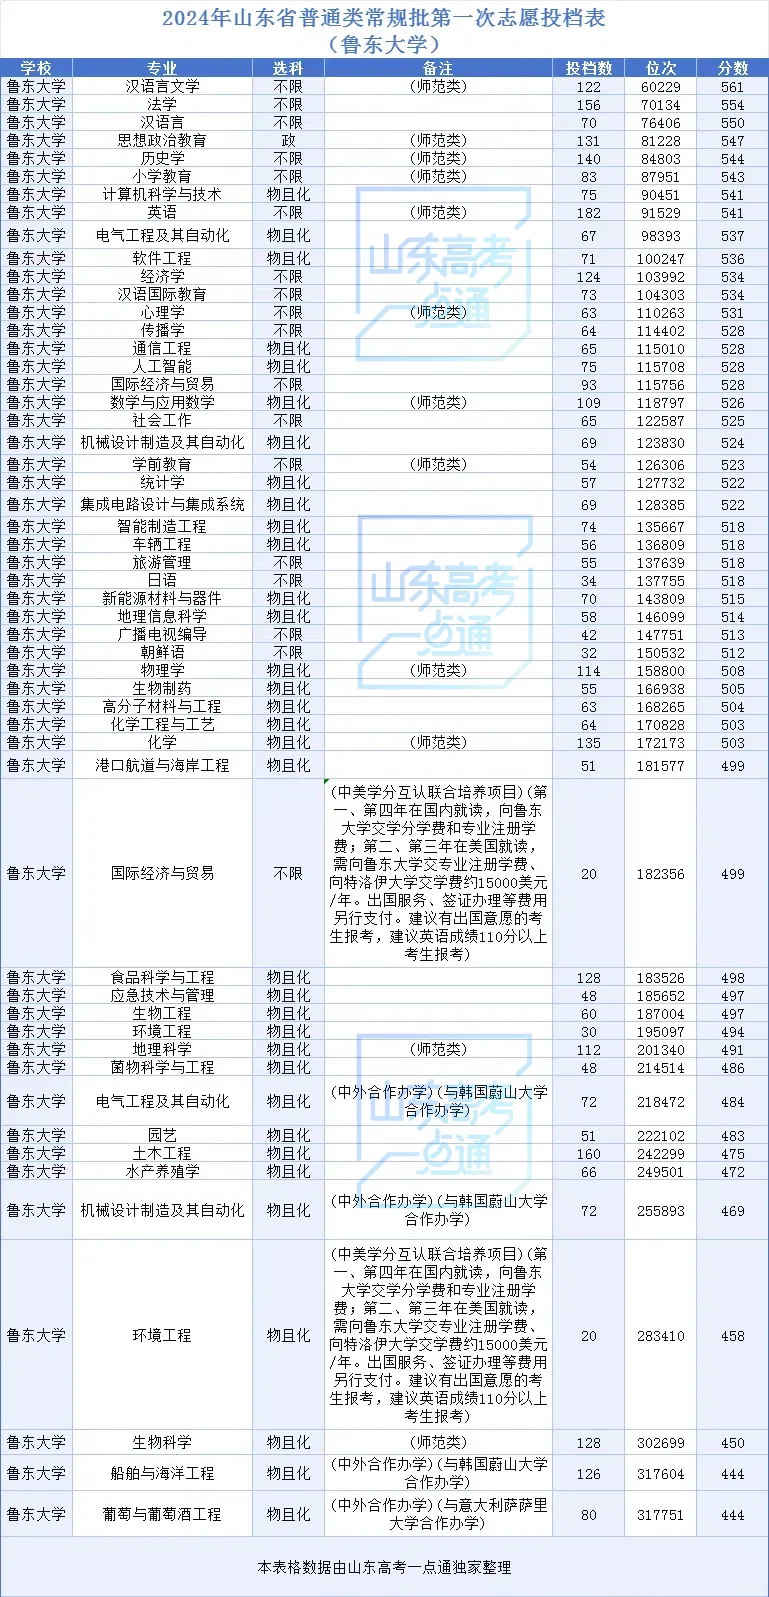 2024年山东省普通类常规批第一次志愿投档表
（鲁东大学）
学校 专业 选科 备注 投档数 位次 分数
鲁东大学 汉语言文学 不限 (师范类) 122 60229 561
鲁东大学 法学 不限 156 70134 554
鲁东大学 汉语言 不限 70 76406 550
鲁东大学 思想政治教育 政 (师范类) 131 81228 547
鲁东大学 历史学 不限 (师范类) 140 84803 544
鲁东大学 小学教育 不限 (师范类) 83 87951 543
鲁东大学 计算机科学与技术 物且化 75 90451 541
鲁东大学 英语 不限 (师范类) 182 91529 541
鲁东大学 电气工程及其自动化 物且化 67 98393 537
鲁东大学 软件工程 物且化 71 100247 536
鲁东大学 经济学 不限 124 103992 534
鲁东大学 汉语国际教育 不限 73 104303 534
鲁东大学 心理学 不限 (师范类) 63 110263 531
鲁东大学 传播学 不限 64 114402 528
鲁东大学 通信工程 物且化 65 115010 528
鲁东大学 人工智能 物且化 75 115708 528
鲁东大学 国际经济与贸易 不限 93 115756 528
鲁东大学 数学与应用数学 物且化 (师范类) 109 118797 526
鲁东大学 社会工作 不限 65 122587 525
鲁东大学 机械设计制造及其自动化 物且化 69 123830 524
鲁东大学 学前教育 不限 (师范类) 54 126306 523
鲁东大学 统计学 物且化 57 127732 522
鲁东大学 集成电路设计与集成系统 物且化 69 128385 522
鲁东大学 智能制造工程 物且化 74 135667 518
鲁东大学 车辆工程 物且化 56 136809 518
鲁东大学 旅游管理 不限 55 137639 518
鲁东大学 日语 不限 34 137755 518
鲁东大学 新能源材料与器件 物且化 70 143809 515
鲁东大学 地理信息科学 物且化 58 146099 514
鲁东大学 广播电视编导 不限 42 147751 513
鲁东大学 朝鲜语 不限 32 150532 512
鲁东大学 物理学 物且化 (师范类) 114 158800 508
鲁东大学 生物制药 物且化 55 166938 505
鲁东大学 高分子材料与工程 物且化 63 168265 504
鲁东大学 化学工程与工艺 物且化 64 170828 503
鲁东大学 化学 物且化 (师范类) 135 172173 503
鲁东大学 港口航道与海岸工程 物且化 51 181577 499
(中美学分互认联合培养项目)(第
一、第四年在国内就读，向鲁东
大学交学分学费和专业注册学
费；第二、第三年在美国就读，
鲁东大学 国际经济与贸易 不限 需向鲁东大学交专业注册学费、 20 182356 499
向特洛伊大学交学费约15000美元
/年。出国服务、签证办理等费用
另行支付。建议有出国意愿的考
生报考，建议英语成绩110分以上
考生报考)
鲁东大学 食品科学与工程 物且化 128 183526 498
鲁东大学 应急技术与管理 物且化 48 185652 497
鲁东大学 生物工程 物且化 60 187004 497
鲁东大学 环境工程 物且化 30 195097 494
鲁东大学 地理科学 物且化 (师范类) 112 201340 491
鲁东大学 菌物科学与工程 物且化 48 214514 486
鲁东大学 电气工程及其自动化 物且化 (中外合作办学)(与韩国蔚山大学 72 218472 484
合作办学)
鲁东大学 园艺 物且化 51 222102 483
鲁东大学 土木工程 物且化 160 242299 475
鲁东大学 水产养殖学 物且化 66 249501 472
鲁东大学 机械设计制造及其自动化 物且化 (中外合作办学)(与韩国蔚山大学 72 255893 469
合作办学)
(中美学分互认联合培养项目)(第
一、第四年在国内就读，向鲁东
大学交学分学费和专业注册学
费；第二、第三年在美国就读，
需向鲁东大学交专业注册学费、
鲁东大学 环境工程 物且化 向特洛伊大学交学费约15000美元 20 283410 458
/年。出国服务、签证办理等费用
另行支付。建议有出国意愿的考
生报考，建议英语成绩110分以上
考生报考)
鲁东大学 生物科学 物且化 (师范类) 128 302699 450
鲁东大学 船舶与海洋工程 物且化 (中外合作办学)(与韩国蔚山大学 126 317604 444
合作办学)
鲁东大学 葡萄与葡萄酒工程 物且化 (中外合作办学)(与意大利萨萨里 80 317751 444
大学合作办学)
本表格数据由山东高考一点通独家整理
山东高考
一点通
山东高考
一点通
山东高考
一点通